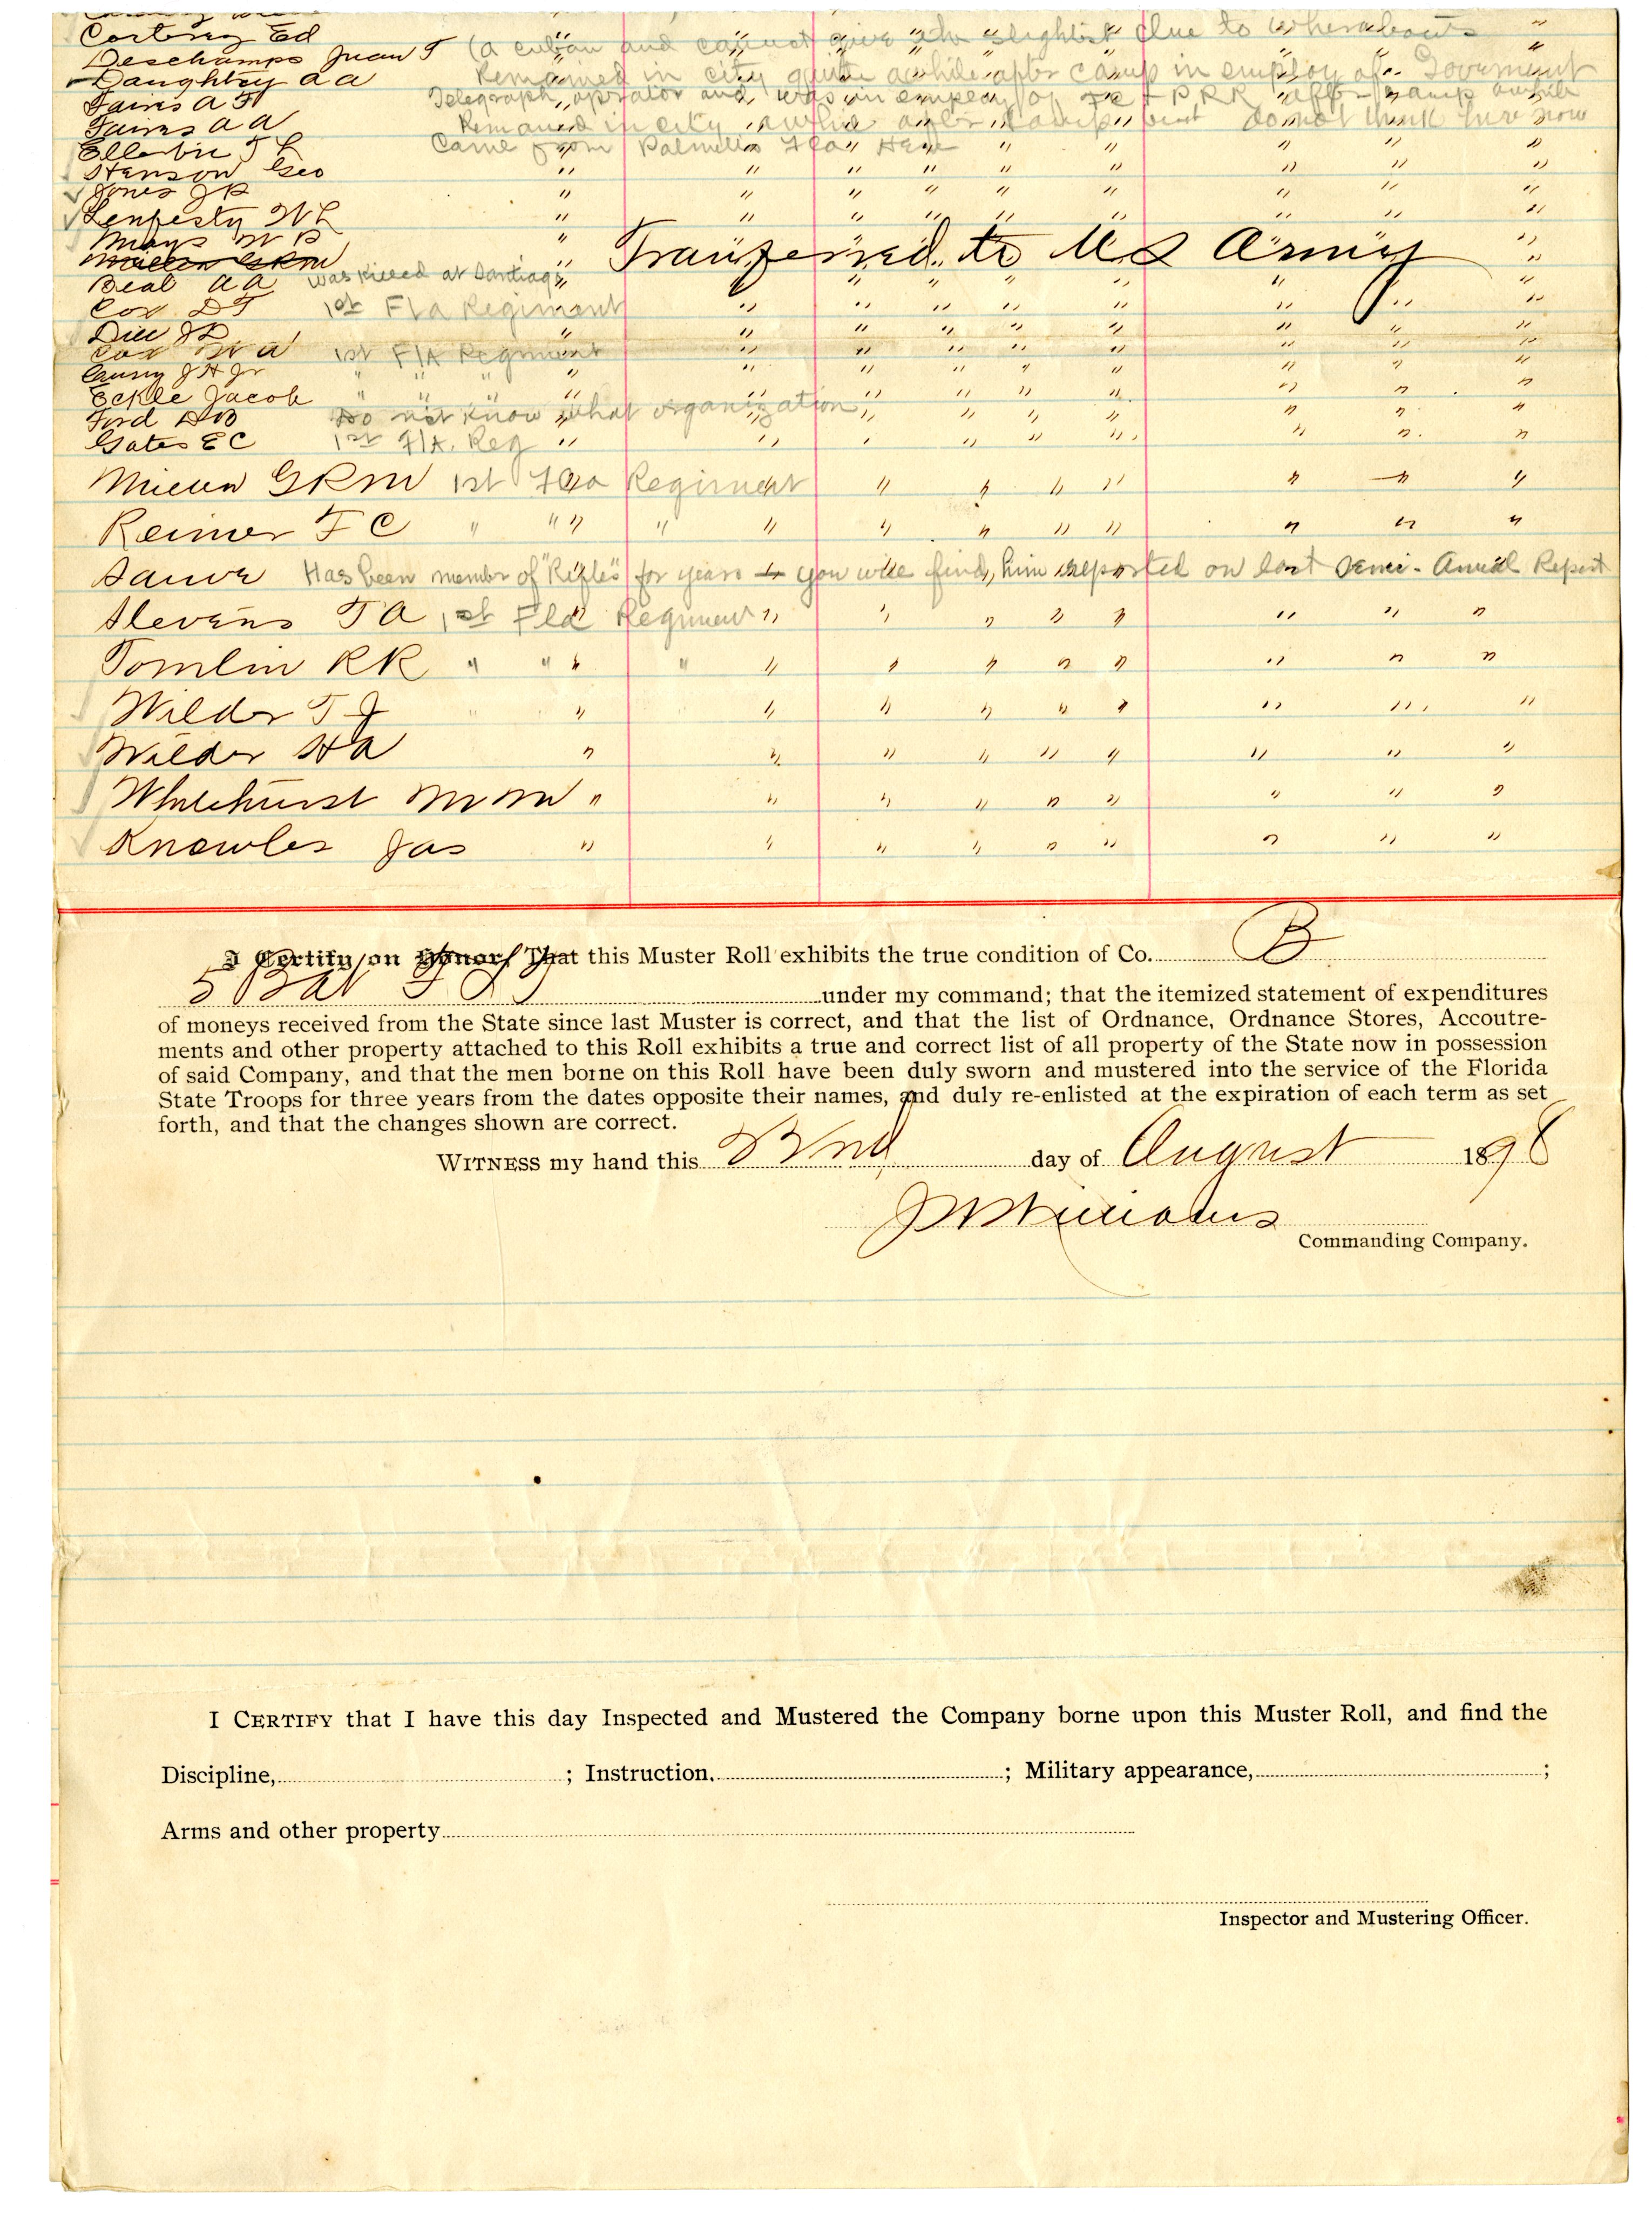 Ed
Deschamps Juan T (a cuban and cannot give the slightest clue to whereabouts
Daughtry A A Remained in city quite awhile after camp in employ of Goverment
Faires A F Telegraph operator and was in employ of F C & P R R after camp awhile
Faires A A Remained in city awhile after camp but do not think here now
Ellerbie T L Came from Palmetto Fla Here
Henson Geo " " " " " " " " "
Jones J R " " " " " " " " "
Lenfesty W L " " " " " " " " "
Mays W P " Transferred to U S Army "
Miller G R M
Beal A A was killed at Santiago " " "
Cox D T 1st Fla Regiment " " " " " " " "
Dill J D " " " " " " " " "
Cox W A 1st Fla Regiment " " " " " " " "
Causy J H Jr " " " " " " " " " " " "
Eckle Jacob " " " " " " " " "
Ford D B Do not know what organization " " " " " " "
Gates E C 1st Fla. Reg " " " " " " " " "
Miller G R M 1st Fla Regiment " " " " " " "
Reimer F C " " " " " " " " " " " " "
Sauve Has been member of "Rifles" for years you will find him reported on last Semi-Annual Report
Stevens T A 1st Fla Regiment " " " " " " " "
Tomlin R R " " " " " " " " " " " "
Wilder T J " " " " " " " " "
Wilder H A " " " " " " " " "
Whitehurst M M " " " " " " " " "
Knowles Jas " " " " " " " " "
I Certify on Honor, That this Muster Roll exhibits the true condition of Co. B
5 Bat F S T under my command; that the itemized statement of expenditures
of moneys received from the State since last Muster is correct, and that the list of Ordnance, Ordnance Stores, Accoutre-
ments and other property attached to this Roll exhibits a true and correct list of all property of the State now in possession
of said Company, and that the men borne on this Roll have been duly sworn and mustered into the service of the Florida
State Troops for three years from the dates opposite their names, and duly re-enlisted at the expiration of each term as set
forth, and that the changes shown are correct.
WITNESS my hand this day of August 1898
Williams
Commanding Company.
I CERTIFY that I have this day Inspected and Mustered the Company borne upon this Muster Roll, and find the
Discipline, ; Instruction, ; Military appearance, ;
Arms and other property
Inspector and Mustering Officer.